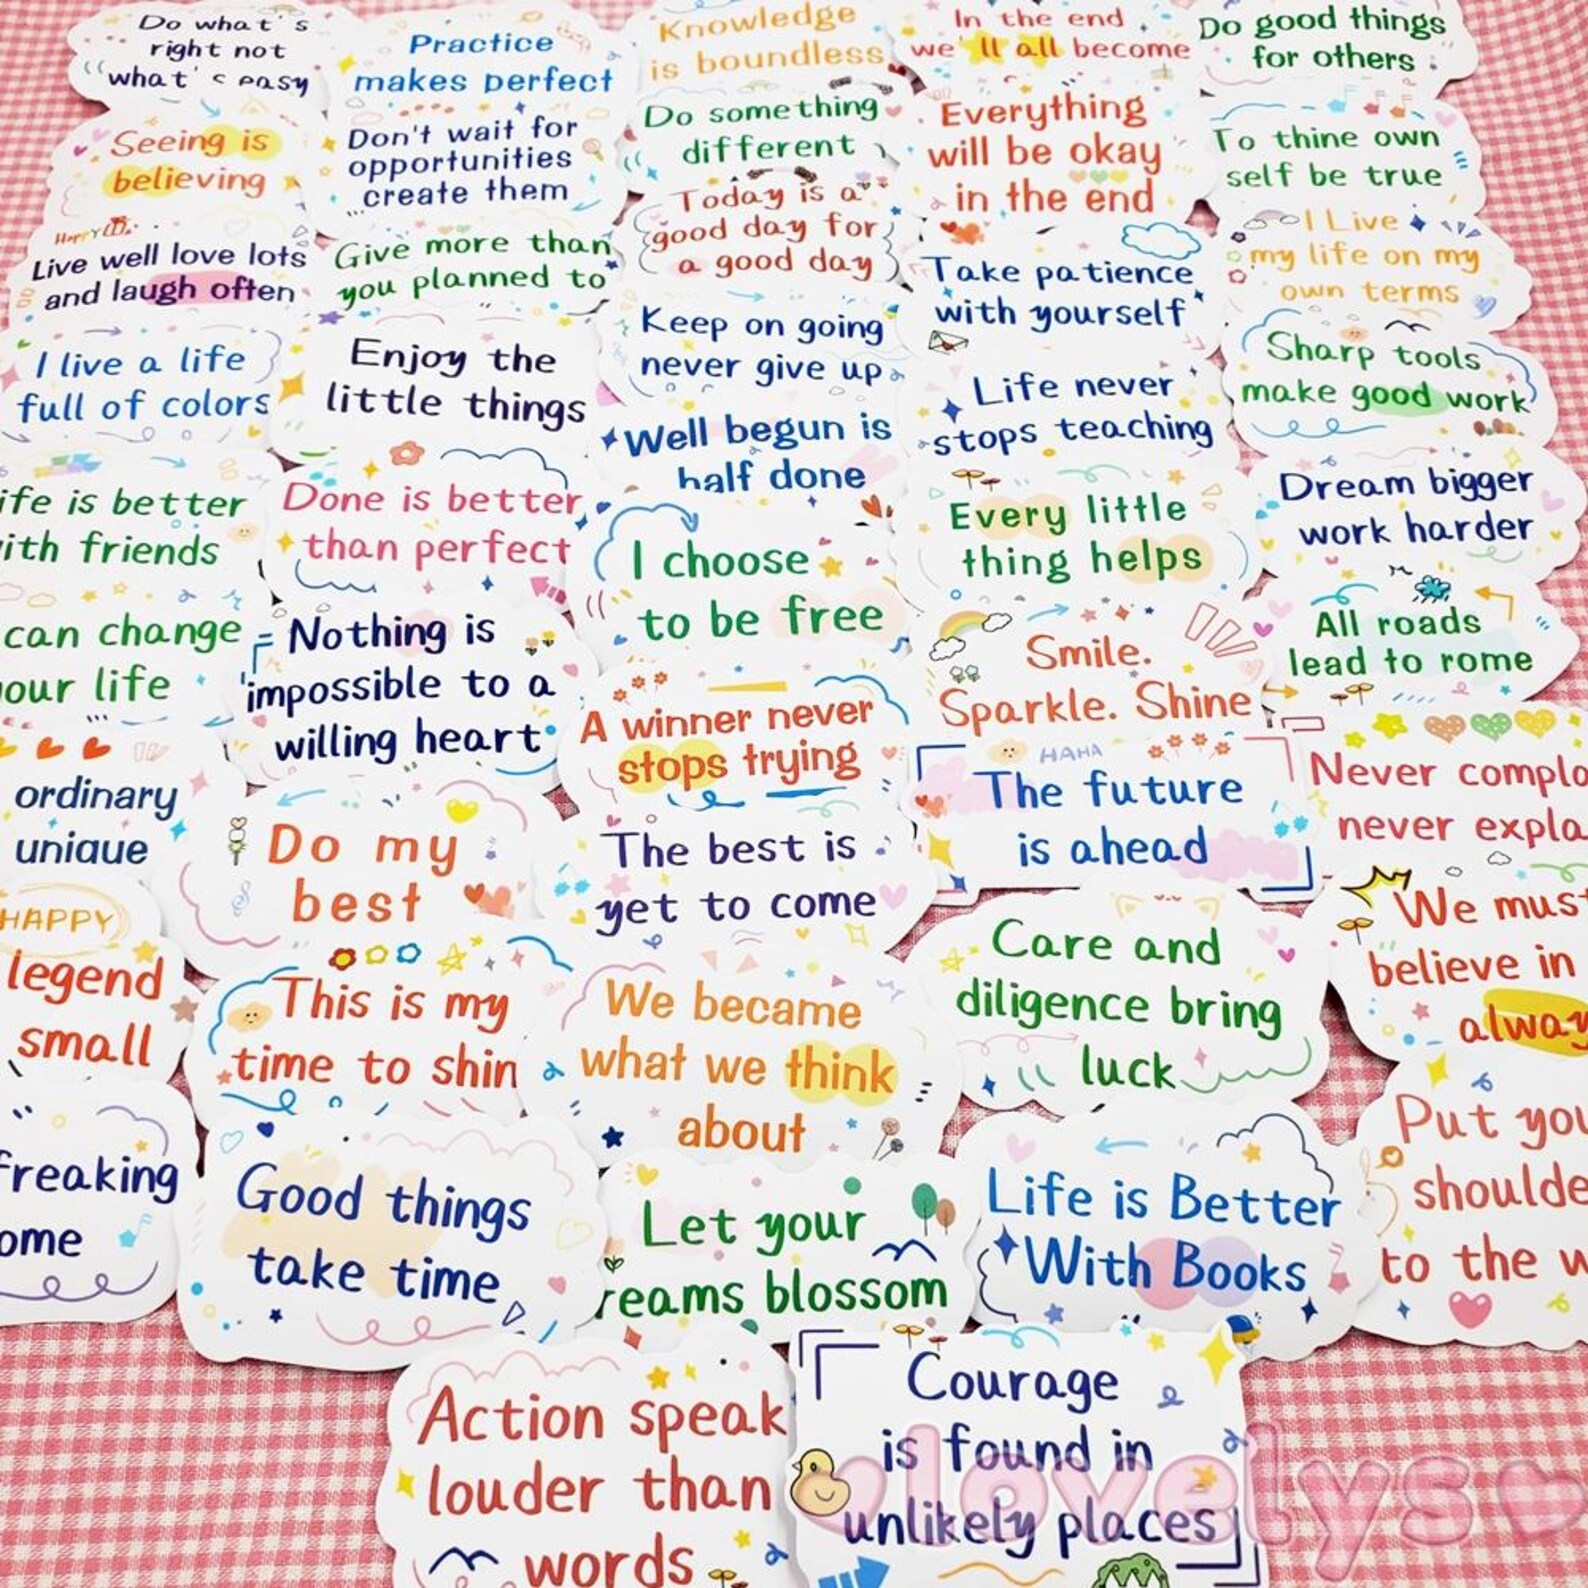 Do what's
right not
what's easy
Practice
makes perfect
Knowledge
is boundless
In the end
we'll all become
Do good things
for others
Seeing is
believing
Don't wait for
opportunities
create them
Do something
different
Everything
will be okay
in the end
To thine own
self be true
Happy
Live well love lots
and laugh often
Give more than
you planned to
Today is a
good day for
a good day
Take patience
with yourself
I Live
my life on my
own terms
I live a life
full of colors
Enjoy the
little things
Keep on going
never give up
Life never
stops teaching
Sharp tools
make good work
ife is better
ith friends
Done is better
than perfect
Well begun is
half done
Every little
thing helps
Dream bigger
work harder
can change
our life
Nothing is
impossible to a
willing heart
I choose
to be free
Smile.
Sparkle. Shine
All roads
lead to rome
ordinary
unique
Do my
best
A winner never
stops trying
HAHA
The future
is ahead
Never compla
never expla
HAPPY
legend
small
This is my
time to shin
The best is
yet to come
Care and
diligence bring
luck
We must
believe in
alway
freaking
ome
Good things
take time
We became
what we think
about
Let your
reams blossom
Life is Better
With Books
Put you
shoulde
to the w
Action speak
louder than
words
Courage
is found in
unlikely places
lovelys